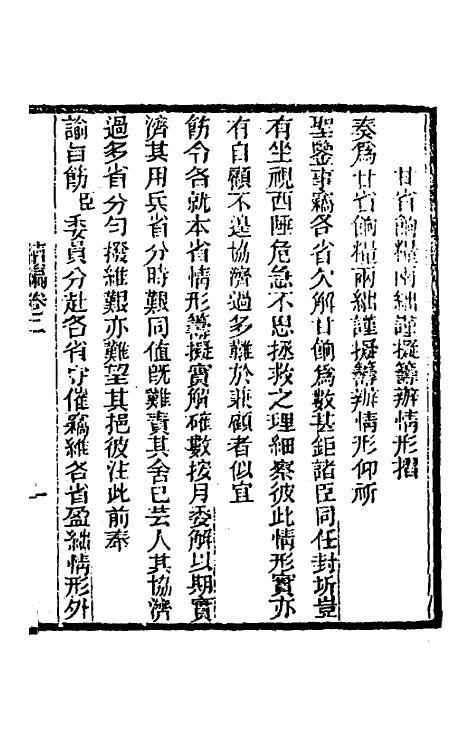 甘省餉糧兩絀謹擬籌辦情形摺
奏爲甘省餉糧兩絀謹擬籌辦情形仰祈
聖鑒事竊各省欠解甘餉爲數甚鉅諸臣同任封圻豈
有坐視西陲危急不思拯救之理細察彼此情形實亦
有自顧不遑協濟過多難於兼顧者似宜
飭令各就本省情形籌擬實解確數按月委解以期實
濟其用兵省分時艱同值旣難責其舍己芸人其協濟
過多省分勻撥維艱亦難望其挹彼注此前奉
諭旨飭臣委員分赴各省守催竊維各省盈絀情形外
續編卷三
一